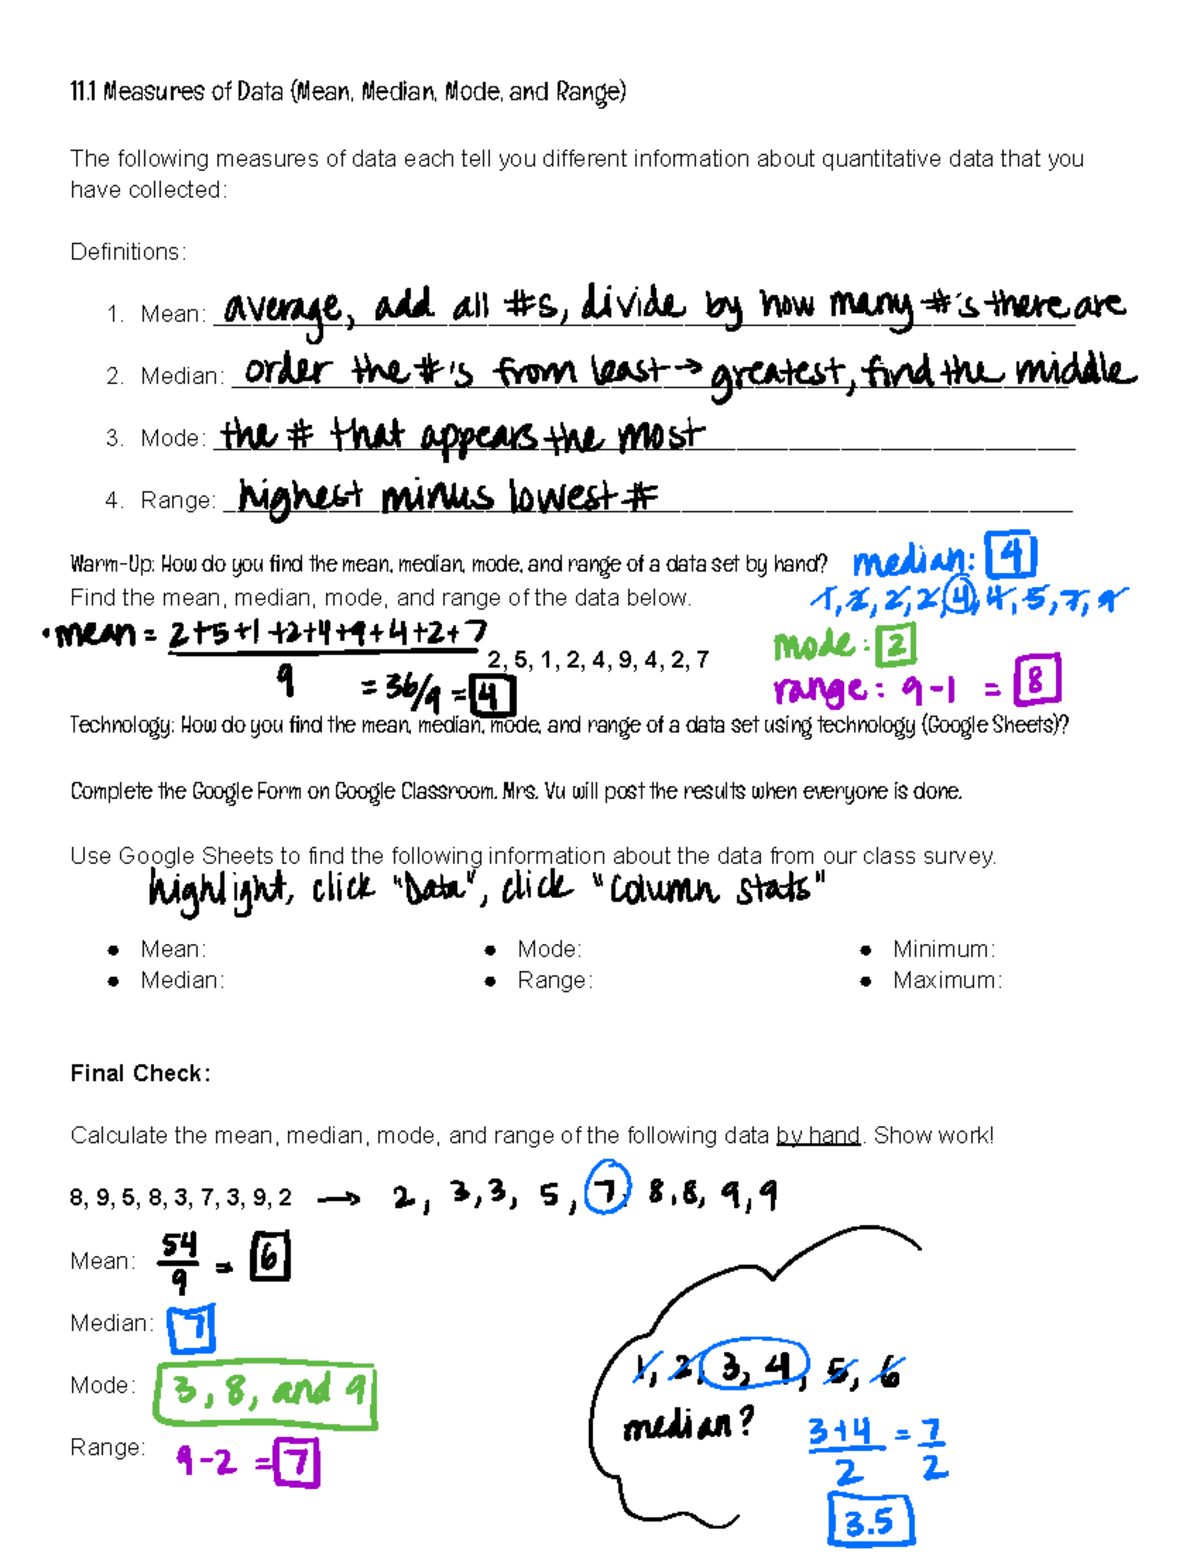 11.1 Measures of Data (Mean, Median, Mode, and Range)
The following measures of data each tell you different information about quantitative data that you
have collected:
Definitions:
1. Mean: average, add all #s, divide by how many #'s there are
2. Median: order the #'s from least → greatest, find the middle
3. Mode: the # that appears the most
4. Range: highest minus lowest #
Warm-Up: How do you find the mean, median, mode, and range of a data set by hand? median: 4
Find the mean, median, mode, and range of the data below. 1, 2, 2, 2, 4, 4, 5, 7, 9
• mean = 2+5+1+2+4+9+4+2+7 mode: 2
2, 5, 1, 2, 4, 9, 4, 2, 7
9 = 36/9 = 4 range: 9-1 = 8
Technology: How do you find the mean, median, mode, and range of a data set using technology (Google Sheets)?
Complete the Google Form on Google Classroom. Mrs. Vu will post the results when everyone is done.
Use Google Sheets to find the following information about the data from our class survey.
highlight, click "Data", click "Column stats"
● Mean: ● Mode: ● Minimum:
● Median: ● Range: ● Maximum:
Final Check:
Calculate the mean, median, mode, and range of the following data by hand. Show work!
8, 9, 5, 8, 3, 7, 3, 9, 2 → 2, 3,3, 5, 7, 8,8, 9,9
Mean: 54/9 = 6
Median: 7
Mode: 3, 8, and 9
Range: 9-2 = 7
1, 2, 3, 4, 5, 6
median? 3+4/2 = 7/2
3.5